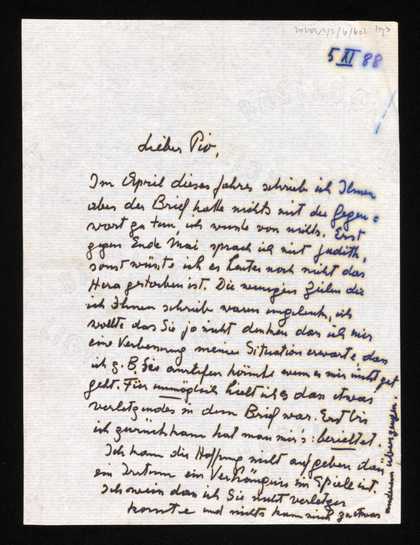 5 XI 88
Lieber Pio,
Im April dieses Jahres schrieb ich Ihnen
aber der Brief hatte nichts mit der Gegen=
wart zu tun, ich wusste von nichts. Erst
gegen Ende Mai sprach ich mit Judith,
sonst wüsste ich es heute noch nicht das
Hera gestorben ist. Die wenigen Zeilen die
ich Ihnen schrieb waren ungelenk, ich
wollte das Sie ja nicht denken das ich mir
eine Verbesserung meiner Situation erwarte das
ich z.B. Sie anrufen könnte wenn es mir nicht gut
geht. Für unmöglich hielt ich es das etwas
verletzendes in dem Brief war. Erst bis
ich zurück kam hat man mir's berichtet.
Ich kann die Hoffnung nicht aufgeben das
ein Irrtum ein Verhängnis im Spiele ist.
Ich weiss das ich Sie nicht verletzen
konnte und nichts kann mich zu etwas
anderem überzeugen.